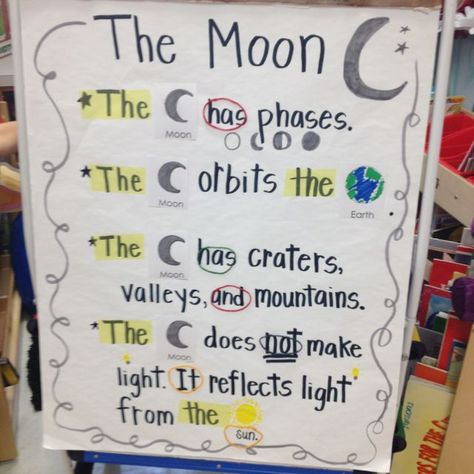 The Moon
*The Moon has phases.
*The Moon orbits the Earth
*The Moon has craters,
valleys, and mountains.
*The Moon does not make
light. It reflects light
from the sun.